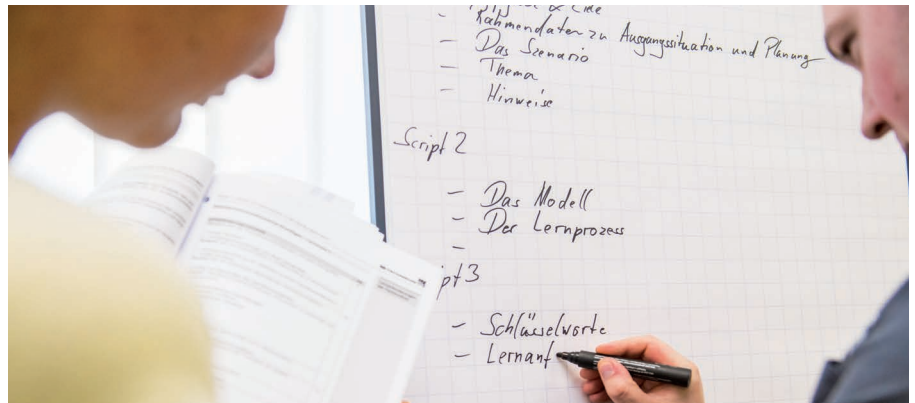 Rahmendaten zu Ausgangssituation und Planung
- Das Szenario
- Thema
- Hinweise
Script 2
- Das Modell
- Der Lernprozess
-
pt 3
- Schlüsselworte
- Lernauf